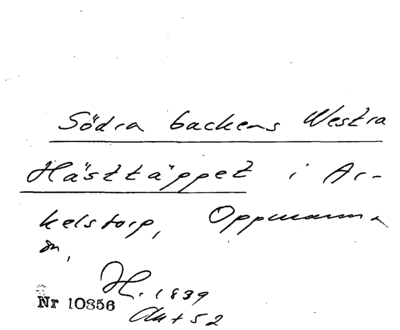 Södra backens Westra
Hästtäppet i Ar-
kelstorp, Oppmanna
sn,
H. 1839
Nr 10856
Akt 52